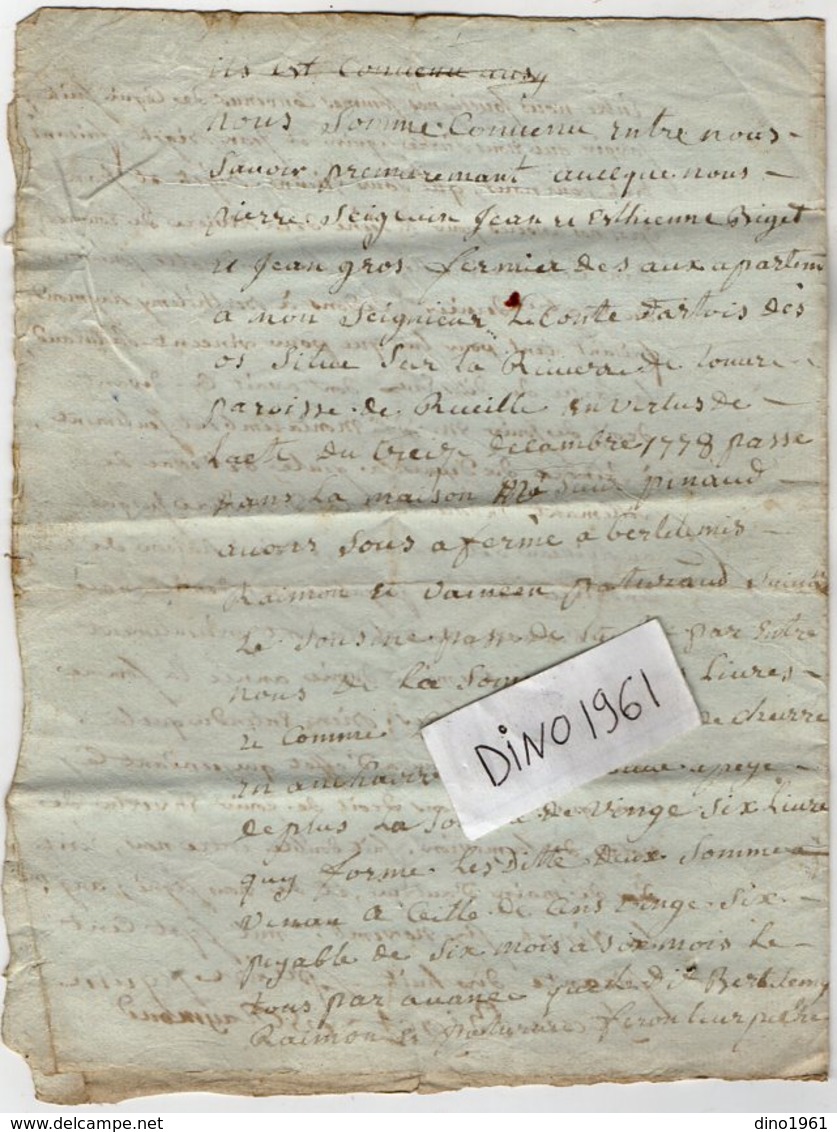 ils est Convenu ausy
nous Somme Convenu entre nous
Savoir premierement aucque nous
pierre Seigevin Jean et Esthienne Biget
et Jean gros fermier des aux apartem
a mon Seignieur Le Conte Dartois des
os Situe Sur la Riviere de Louvre
paroisse de Rueille En vertus de
Lacte du treize decembre 1778 passe
dans La maison pinaud
avons Sous aferme a bertelemis
Raimon et vaincen paturaud
Le Sousine par Entre
nous de La Som Livres
et Comme de cheurre
en apeye
de plus La So de Vinge Six Livre
quy forme Les Ditte deux Somme
Venan a Celle de Cens Vinge Six
payable de Six mois a Six mois Le
tous par avance que le Dit Bertelemy
Raimon et paturaud feron leur
DiNO1961
dino1961